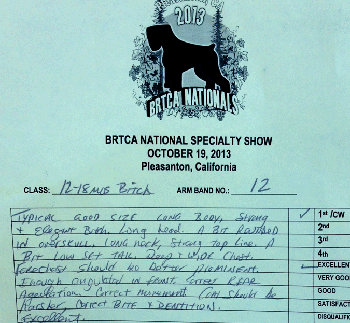 2013
BRTCA NATIONALS
BRTCA NATIONAL SPECIALTY SHOW
OCTOBER 19, 2013
Pleasanton, California
CLASS: 12-18 mos Bitch ARM BAND NO.: 12
TYPICAL GOOD SIZE LONG BODY, Strong
+ Elegant Bitch. Long head. A BIT ROUNDED
IN OVERSKULL. LONG NECK, STRONG TOP LINE. A
BIT LOW SET TAIL DEEP & WIDE CHEST.
FORECHEST SHOULD BE BETTER PROMINENT.
ENOUGH ANGULATED IN FRONT. CORRECT REAR
ANGULATION. CORRECT MOVEMENT. COAT SHOULD BE
HARSHER. CORRECT BITE & DENTITION.
EXCELLENT
1st /CW
2nd
3rd
4th
EXCELLENT
VERY GOOD
GOOD
SATISFACT
DISQUALIF